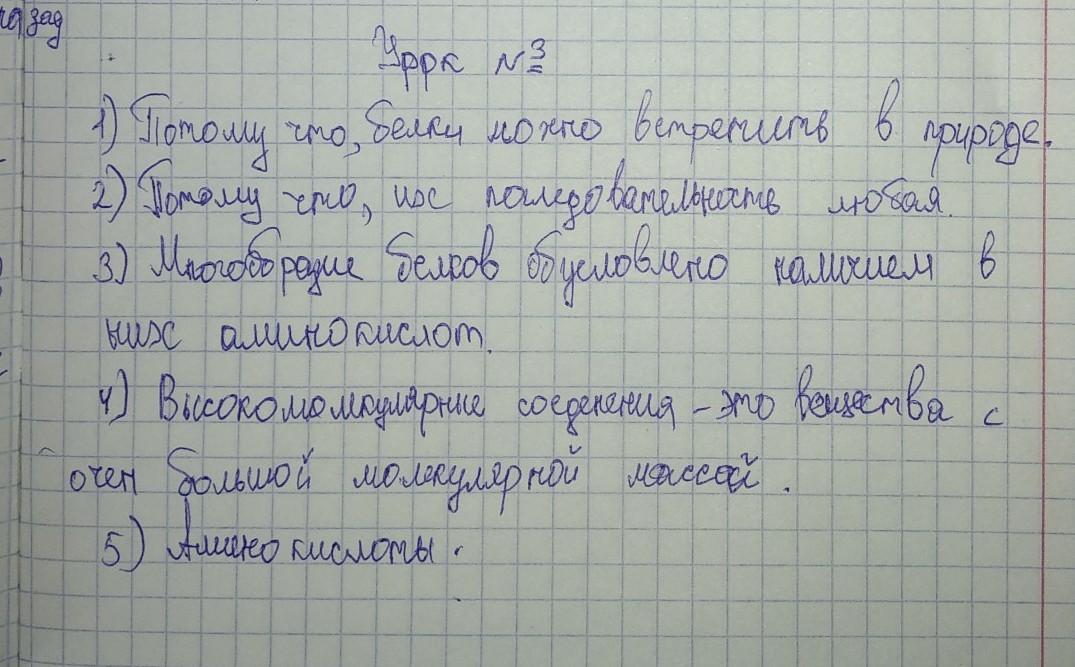 назад
Урок №3
1) Потому что, белки можно встретить в природе.
2) Потому что, их последовательность любая.
3) Многобразие белков обусловлено наличием в
них аминокислот.
4) Высокомомкулярные соеденения - это вещества с
очен большой молекулярной массой.
5) Аминокислоты.